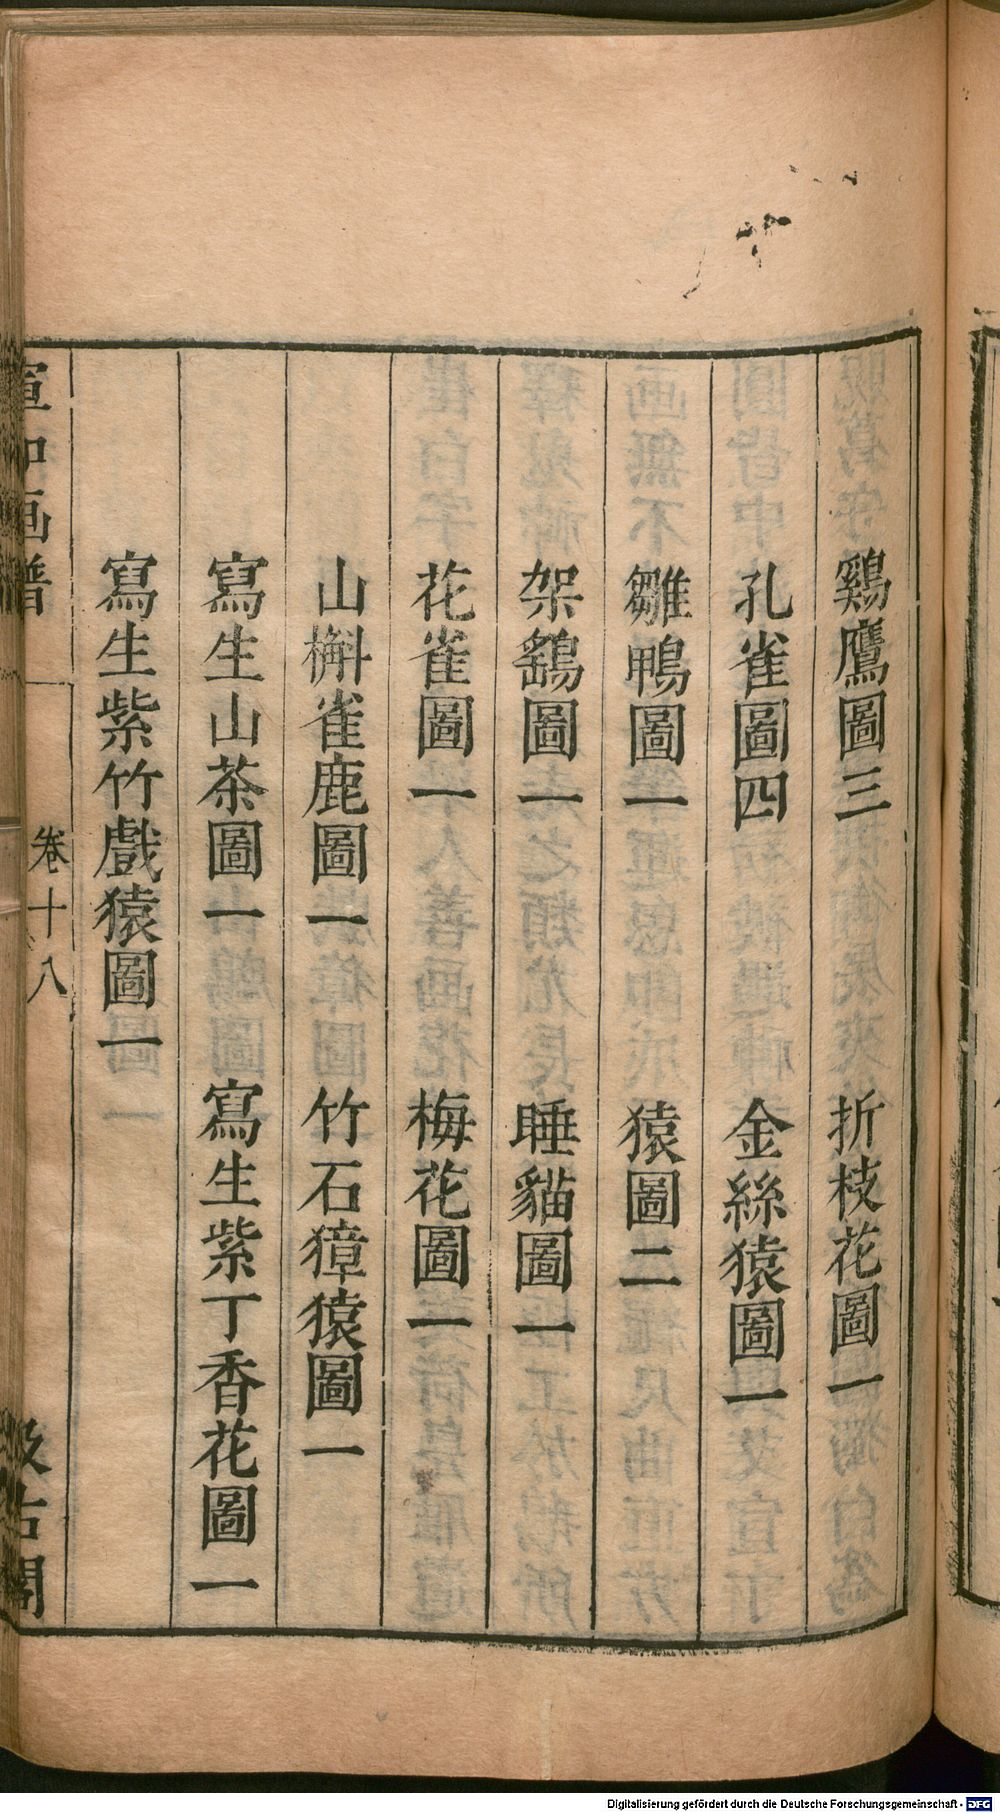 鷄鷹圖三　折枝花圖一
孔雀圖四　金絲猿圖一
雛鴨圖一　猿圖二
架鷂圖一　睡貓圖一
花雀圖一　梅花圖一
山槲雀鹿圖一　竹石獐猿圖一
寫生山茶圖一　寫生紫丁香花圖一
寫生紫竹戲猿圖一
宣和画譜　卷十八　汲古閣
Digitalisierung gefördert durch die Deutsche Forschungsgemeinschaft - DFG